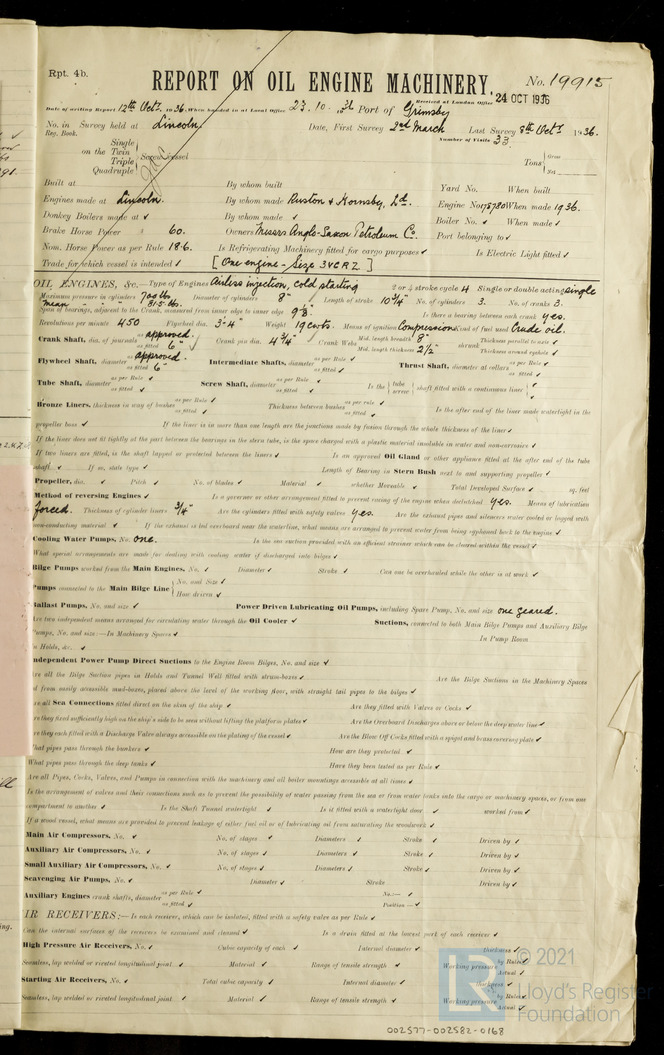 Rpt. 4b.
REPORT ON OIL ENGINE MACHINERY.
No. 19915
Received at London Office 24 OCT 1936
Date of writing Report 12th Octr. 1936. When handed in at Local Office 23. 10. 36 Port of Grimsby
No. in Reg. Book. Survey held at Lincoln. Date, First Survey 2nd March Last Survey 8th Octr 1936.
Number of Visits 33
on the Single Twin Triple Quadruple Screw Vessel Tons Gross Net
Built at By whom built Yard No. When built
Engines made at Lincoln. By whom made Ruston & Hornsby, Ld. Engine No. 178780 When made 1936.
Donkey Boilers made at ✓ By whom made ✓ Boiler No. ✓ When made ✓
Brake Horse Power 60. Owners Messrs Anglo-Saxon Petroleum Co. Port belonging to ✓
Nom. Horse Power as per Rule 18.6. Is Refrigerating Machinery fitted for cargo purposes ✓ Is Electric Light fitted ✓
Trade for which vessel is intended ✓ [One engine – Size 3VCRZ]
OIL ENGINES, &c.—Type of Engines Airless injection, cold starting 2 or 4 stroke cycle 4 Single or double acting single
Maximum pressure in cylinders 700 lbs. Diameter of cylinders 8" Length of stroke 10 3/4" No. of cylinders 3. No. of cranks 3.
Mean 81.5 lbs.
Span of bearings, adjacent to the Crank, measured from inner edge to inner edge 9 5/8" Is there a bearing between each crank yes.
Revolutions per minute 450 Flywheel dia. 3'-4" Weight 19 cwts. Means of ignition Compression Kind of fuel used Crude oil.
Crank Shaft, dia. of journals as per Rule approved. as fitted 6" Crank pin dia. 4 3/4" Crank Webs Mid. length breadth 8" Mid. length thickness 2 1/2" shrunk Thickness parallel to axis ✓ Thickness around eyehole ✓
Flywheel Shaft, diameter as per Rule approved. as fitted 6" Intermediate Shafts, diameter as per Rule ✓ as fitted ✓ Thrust Shaft, diameter at collars as per Rule ✓ as fitted ✓
Tube Shaft, diameter as per Rule ✓ as fitted ✓ Screw Shaft, diameter as per Rule ✓ as fitted ✓ Is the tube screw shaft fitted with a continuous liner ✓
Bronze Liners, thickness in way of bushes as per Rule ✓ as fitted ✓ Thickness between bushes as per rule ✓ as fitted ✓ Is the after end of the liner made watertight in the
propeller boss ✓ If the liner is in more than one length are the junctions made by fusion through the whole thickness of the liner ✓
If the liner does not fit tightly at the part between the bearings in the stern tube, is the space charged with a plastic material insoluble in water and non-corrosive ✓
If two liners are fitted, is the shaft lapped or protected between the liners ✓ Is an approved Oil Gland or other appliance fitted at the after end of the tube
shaft ✓ If so, state type ✓ Length of Bearing in Stern Bush next to and supporting propeller ✓
Propeller, dia. ✓ Pitch ✓ No. of blades ✓ Material ✓ whether Moveable ✓ Total Developed Surface ✓ sq. feet
Method of reversing Engines ✓ Is a governor or other arrangement fitted to prevent racing of the engine when declutched yes. Means of lubrication
forced. Thickness of cylinder liners 3/4" Are the cylinders fitted with safety valves yes. Are the exhaust pipes and silencers water cooled or lagged with
non-conducting material ✓ If the exhaust is led overboard near the waterline, what means are arranged to prevent water from being syphoned back to the engine ✓
Cooling Water Pumps, No. one. Is the sea suction provided with an efficient strainer which can be cleared within the vessel ✓
What special arrangements are made for dealing with cooling water if discharged into bilges ✓
Bilge Pumps worked from the Main Engines, No. ✓ Diameter ✓ Stroke ✓ Can one be overhauled while the other is at work ✓
Pumps connected to the Main Bilge Line No. and Size ✓ How driven ✓
Ballast Pumps, No. and size ✓ Power Driven Lubricating Oil Pumps, including Spare Pump, No. and size one geared.
Are two independent means arranged for circulating water through the Oil Cooler ✓ Suctions, connected to both Main Bilge Pumps and Auxiliary Bilge
Pumps, No. and size:—In Machinery Spaces ✓ In Pump Room
In Holds, &c. ✓
Independent Power Pump Direct Suctions to the Engine Room Bilges, No. and size ✓
Are all the Bilge Suction pipes in Holds and Tunnel Well fitted with strum-boxes ✓ Are the Bilge Suctions in the Machinery Spaces
led from easily accessible mud-boxes, placed above the level of the working floor, with straight tail pipes to the bilges ✓
Are all Sea Connections fitted direct on the skin of the ship ✓ Are they fitted with Valves or Cocks ✓
Are they fixed sufficiently high on the ship's side to be seen without lifting the platform plates ✓ Are the Overboard Discharges above or below the deep water line ✓
Are they each fitted with a Discharge Valve always accessible on the plating of the vessel ✓ Are the Blow Off Cocks fitted with a spigot and brass covering plate ✓
What pipes pass through the bunkers ✓ How are they protected ✓
What pipes pass through the deep tanks ✓ Have they been tested as per Rule ✓
Are all Pipes, Cocks, Valves, and Pumps in connection with the machinery and all boiler mountings accessible at all times ✓
Is the arrangement of valves and their connections such as to prevent the possibility of water passing from the sea or from water tanks into the cargo or machinery spaces, or from one
compartment to another ✓ Is the Shaft Tunnel watertight ✓ Is it fitted with a watertight door ✓ worked from ✓
If a wood vessel, what means are provided to prevent leakage of either fuel oil or of lubricating oil from saturating the woodwork ✓
Main Air Compressors, No. ✓ No. of stages ✓ Diameters ✓ Stroke ✓ Driven by ✓
Auxiliary Air Compressors, No. ✓ No. of stages ✓ Diameters ✓ Stroke ✓ Driven by ✓
Small Auxiliary Air Compressors, No. ✓ No. of stages ✓ Diameters ✓ Stroke ✓ Driven by ✓
Scavenging Air Pumps, No. ✓ Diameter ✓ Stroke Driven by ✓
Auxiliary Engines crank shafts, diameter as per Rule ✓ as fitted ✓ No. ✓ Position ✓
IR RECEIVERS:—Is each receiver, which can be isolated, fitted with a safety valve as per Rule ✓
Can the internal surfaces of the receivers be examined and cleaned ✓ Is a drain fitted at the lowest part of each receiver ✓
High Pressure Air Receivers, No. ✓ Cubic capacity of each ✓ Internal diameter ✓ thickness ✓
Seamless, lap welded or riveted longitudinal joint ✓ Material ✓ Range of tensile strength ✓ Working pressure by Rules ✓ Actual ✓
Starting Air Receivers, No. ✓ Total cubic capacity ✓ Internal diameter ✓ thickness ✓
Seamless, lap welded or riveted longitudinal joint ✓ Material ✓ Range of tensile strength ✓ Working pressure by Rules ✓ Actual ✓
© 2021
Lloyd's Register
Foundation
002577-002582-0168